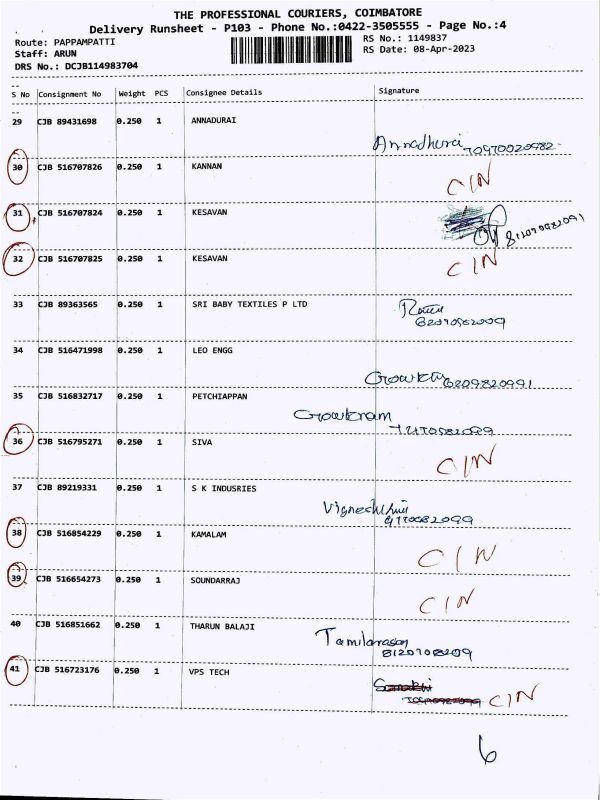 THE PROFESSIONAL COURIERS, COIMBATORE
Delivery Runsheet - P103 - Phone No.:0422-3505555 - Page No.:4
Route: PAPPAMPATTI RS No.: 1149837
Staff: ARUN RS Date: 08-Apr-2023
DRS No.: DCJB114983704
S No Consignment No Weight PCS Consignee Details Signature
29 CJB 89431698 0.250 1 ANNADURAI
Annadhurai
30 CJB 516707826 0.250 1 KANNAN
CIN
31 CJB 516707824 0.250 1 KESAVAN
32 CJB 516707825 0.250 1 KESAVAN
CIN
33 CJB 89363565 0.250 1 SRI BABY TEXTILES P LTD
34 CJB 516471998 0.250 1 LEO ENGG
6209820991
35 CJB 516832717 0.250 1 PETCHIAPPAN
Gowtram
36 CJB 516795271 0.250 1 SIVA
CIN
37 CJB 89219331 0.250 1 S K INDUSRIES
38 CJB 516854229 0.250 1 KAMALAM
CIN
39 CJB 516654273 0.250 1 SOUNDARRAJ
CIN
40 CJB 516851662 0.250 1 THARUN BALAJI
Tamilarasan
8120708209
41 CJB 516723176 0.250 1 VPS TECH
CIN
6